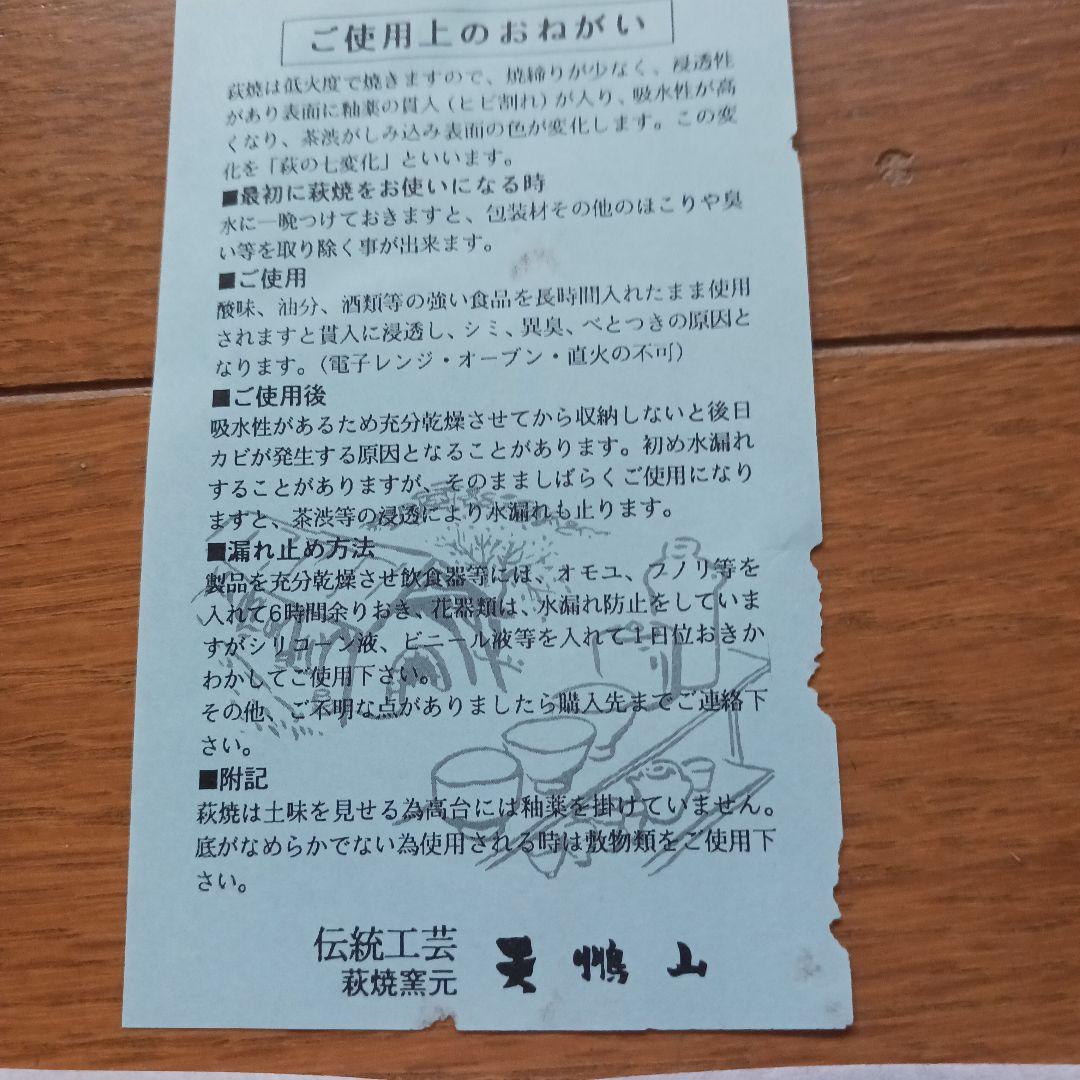 ご使用上のおねがい
萩焼は低火度で焼きますので、焼締りが少なく、浸透性
があり表面に釉薬の貫入（ヒビ割れ）が入り、吸水性が高
くなり、茶渋がしみ込み表面の色が変化します。この変
化を「萩の七変化」といいます。
■最初に萩焼をお使いになる時
水に一晩つけておきますと、包装材その他のほこりや臭
い等を取り除く事が出来ます。
■ご使用
酸味、油分、酒類等の強い食品を長時間入れたまま使用
されますと貫入に浸透し、シミ、異臭、べとつきの原因と
なります。（電子レンジ・オーブン・直火の不可）
■ご使用後
吸水性があるため充分乾燥させてから収納しないと後日
カビが発生する原因となることがあります。初め水漏れ
することがありますが、そのまましばらくご使用になり
ますと、茶渋等の浸透により水漏れも止ります。
■漏れ止め方法
製品を充分乾燥させ飲食器等には、オモユ、フノリ等を
入れて6時間余りおき、花器類は、水漏れ防止をしていま
すがシリコーン液、ビニール液等を入れて1日位おきか
わかしてご使用下さい。
その他、ご不明な点がありましたら購入先までご連絡下
さい。
■附記
萩焼は土味を見せる為高台には釉薬を掛けていません。
底がなめらかでない為使用される時は敷物類をご使用下
さい。
伝統工芸
萩焼窯元 天鵬山